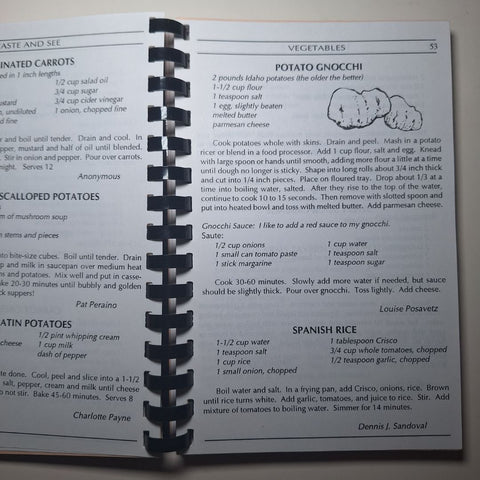 TASTE AND SEE
INATED CARROTS
ed in 1 inch lengths
1/2 cup salad oil
3/4 cup sugar
ustard
3/4 cup cider vinegar
n, undiluted
1 onion, chopped fine
d fine
r and boil until tender. Drain and cool. In
pper, mustard and half of oil until blended.
. Stir in onion and pepper. Pour over carrots.
night. Serves 12
Anonymous
SCALLOPED POTATOES
m of mushroom soup
m stems and pieces
to bite-size cubes. Boil until tender. Drain
up and milk in saucepan over medium heat
ms and potatoes. Mix well and put in casse-
ke 20-30 minutes until bubbly and golden
ck suppers!
Pat Peraino
ATIN POTATOES
1/2 pint whipping cream
cheese
1 cup milk
dash of pepper
te done. Cool, peel and slice into a 1-1/2
salt, pepper, cream and milk until cheese
o not stir. Bake 45-60 minutes. Serves 8
Charlotte Payne
VEGETABLES
53
POTATO GNOCCHI
2 pounds Idaho potatoes (the older the better)
1-1/2 cup flour
1 teaspoon salt
1 egg, slightly beaten
melted butter
parmesan cheese
Cook potatoes whole with skins. Drain and peel. Mash in a potato
ricer or blend in a food processor. Add 1 cup flour, salt and egg. Knead
with large spoon or hands until smooth, adding more flour a little at a time
until dough no longer is sticky. Shape into long rolls about 3/4 inch thick
and cut into 1/4 inch pieces. Place on floured tray. Drop about 1/3 at a
time into boiling water, salted. After they rise to the top of the water,
continue to cook 10 to 15 seconds. Then remove with slotted spoon and
put into heated bowl and toss with melted butter. Add parmesan cheese.
Gnocchi Sauce: I like to add a red sauce to my gnocchi.
Saute:
1/2 cup onions
1 cup water
1 small can tomato paste
1 teaspoon salt
1 stick margarine
1 teaspoon sugar
Cook 30-60 minutes. Slowly add more water if needed, but sauce
should be slightly thick. Pour over gnocchi. Toss lightly. Add cheese.
Louise Posavetz
SPANISH RICE
1-1/2 cup water
1 tablespoon Crisco
1 teaspoon salt
3/4 cup whole tomatoes, chopped
1 cup rice
1/2 teaspoon garlic, chopped
1 small onion, chopped
Boil water and salt. In a frying pan, add Crisco, onions, rice. Brown
until rice turns white. Add garlic, tomatoes, and juice to rice. Stir. Add
mixture of tomatoes to boiling water. Simmer for 14 minutes.
Dennis J. Sandoval